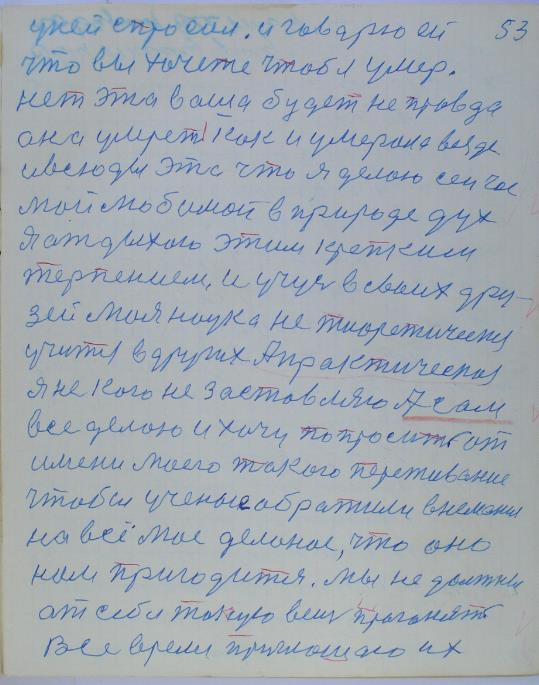 уней спросил. и говарю ей 53
что вы хочете чтобы умер.
нет эта ваша будет не правда
она умрет как и умерала везде
ивсюды эта что я делаю сейчас
мой любимой в природе дух
Я атдыхаю этим крепким
терпением, и учуся в своих дру-
зей Моя наука не тиоретически
учится в других А практически
я не кого не заставляю А сам
все делаю и хочу попросить от
имени моего такого переживание
чтобы ученые обратили внемания
на всё мое деланое, что оно
нам пригодится. мы не должны
ат себя такую вещ прогонять
Все время приглошаю их